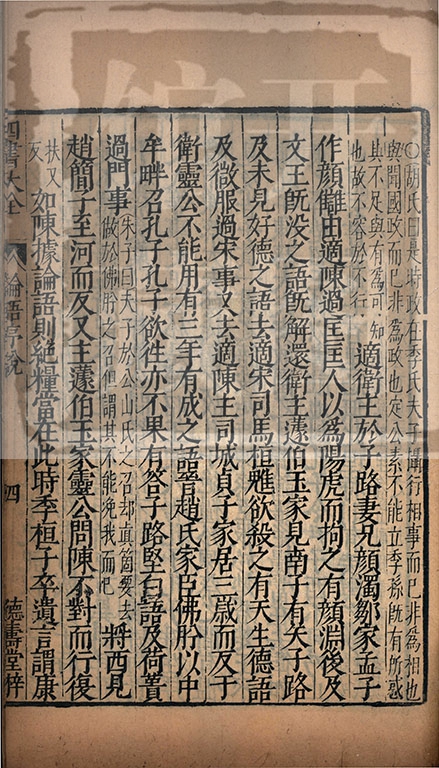 ○胡氏曰是時政在季氏夫子攝行相事而已非爲相也
與聞國政而已非爲政也定公素不能立季孫旣有所惑
其不足與有爲可知
也故不容於不行
適衛主於子路妻兄顔濁鄒家孟子
作顔讎由適陳過匡匡人以爲陽虎而拘之有顔淵後及
文王旣没之語旣解還衛主蘧伯玉家見南子有矢子路
及未見好德之語去適宋司馬桓魋欲殺之有天生德語
及微服過宋事又去適陳主司城貞子家居三歲而反于
衛靈公不能用有三年有成之語晉趙氏家臣佛肸以中
牟畔召孔子孔子欲往亦不果有荅子路堅白語及荷蕢
過門事
朱子曰夫子於公山氏之召却真箇要去
做於佛肸之召但謂其不能浼我而已
將西見
趙簡子至河而反又主蘧伯玉家靈公問陳不對而行復
扶又
反
如陳據論語則絶糧當在此時季桓子卒遺言謂康
四書大全 論語序說 四 德壽堂梓